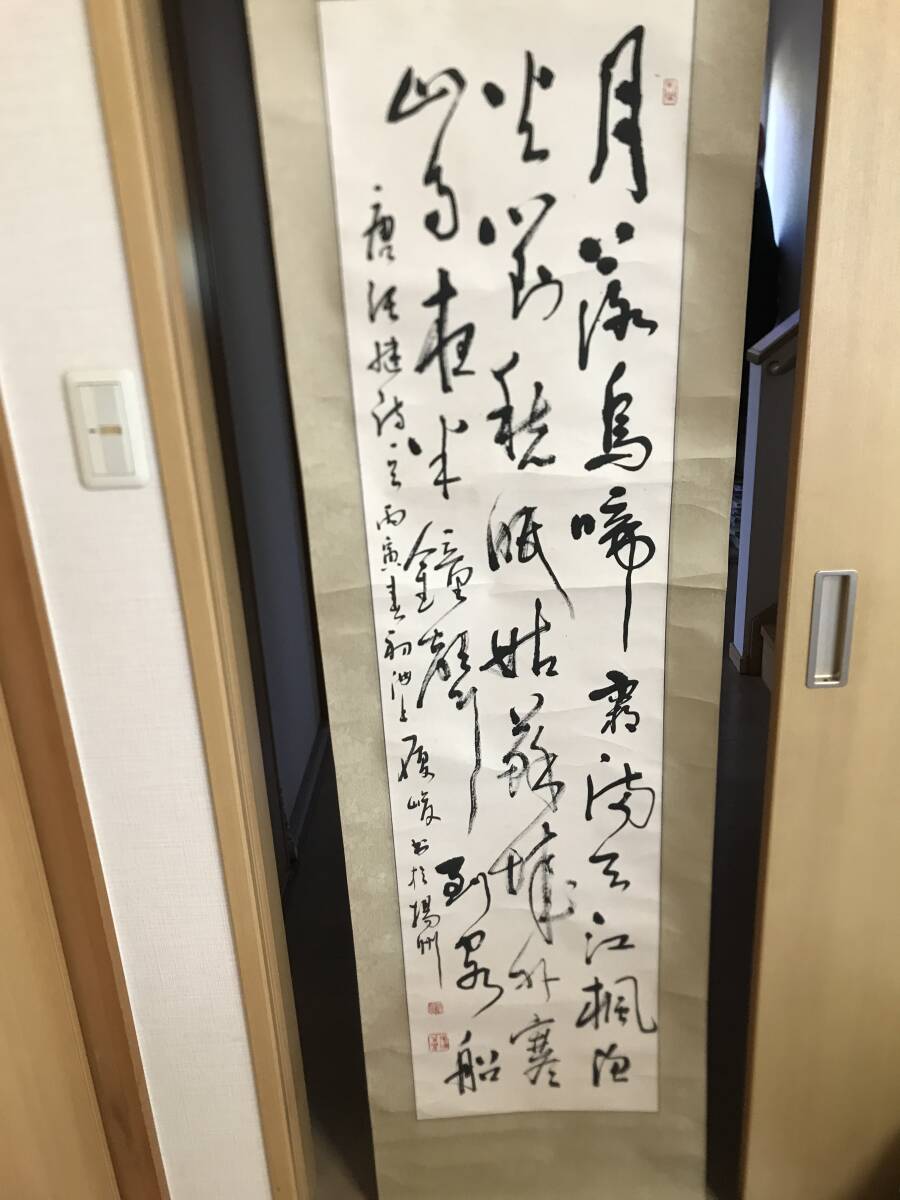 月落烏啼霜満天江楓漁
火對愁眠姑蘇城外寒
山寺夜半鐘聲到客船
唐張継詩一首丙寅春初 上 峻書於揚州